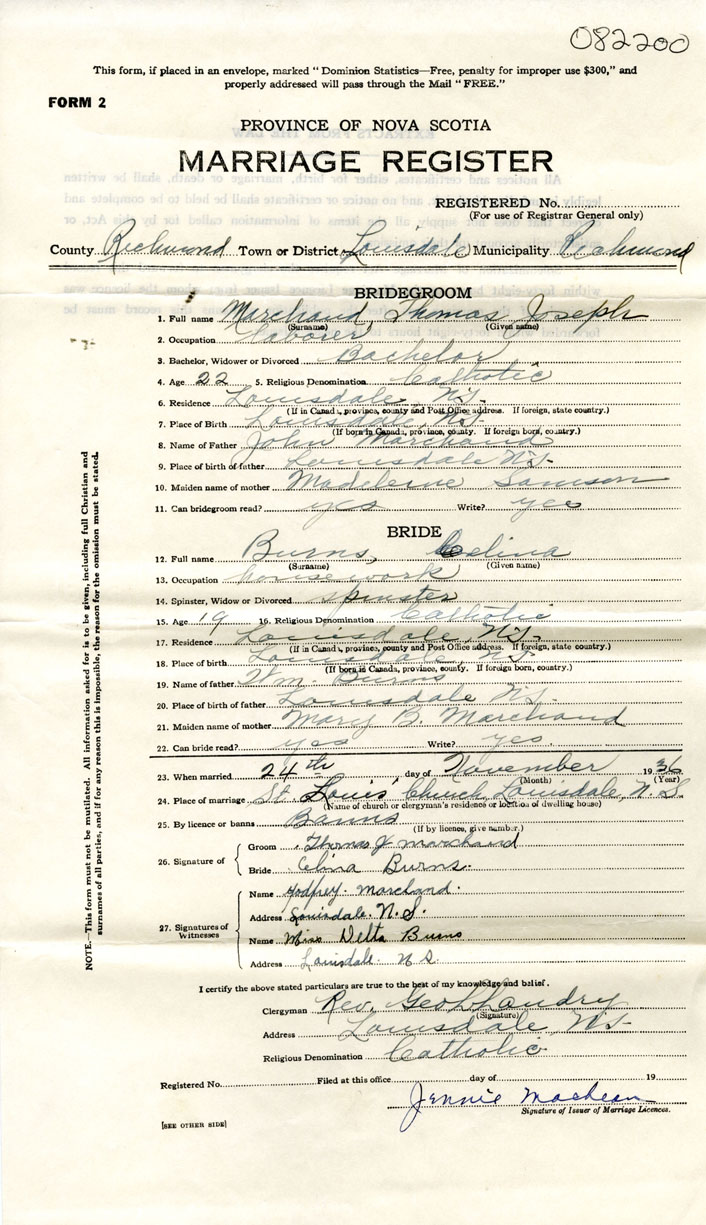 082200
This form, if placed in an envelope, marked "Dominion Statistics—Free, penalty for improper use $300," and
properly addressed will pass through the Mail "FREE."
FORM 2
PROVINCE OF NOVA SCOTIA
MARRIAGE REGISTER
REGISTERED No.
(For use of Registrar General only)
County Richmond Town or District Louisdale Municipality Richmond
BRIDEGROOM
1. Full name Marchand, Thomas Joseph
(Surname) (Given name)
2. Occupation laborer
3. Bachelor, Widower or Divorced Bachelor
4. Age 22 5. Religious Denomination Catholic
6. Residence Louisdale N.S.
(If in Canada, province, county and Post Office address. If foreign, state country.)
7. Place of Birth Louisdale,
(If born in Canada, province, county. If foreign born, country.)
8. Name of Father John Marchand
9. Place of birth of father Louisdale N.S.
10. Maiden name of mother Madeleine Samson
11. Can bridegroom read? yes Write? yes
BRIDE
12. Full name Burns, Celina
(Surname) (Given name)
13. Occupation house work
14. Spinster, Widow or Divorced spinster
15. Age 19 16. Religious Denomination Catholic
17. Residence Louisdale, N.S.
(If in Canada, province, county and Post Office address. If foreign, state country.)
18. Place of birth Louisdale,
(If born in Canada, province, county. If foreign born, country.)
19. Name of father Wm. Burns
20. Place of birth of father Louisdale N.S.
21. Maiden name of mother Mary B. Marchand
22. Can bride read? yes Write? yes
23. When married 24th day of November 1936
(Month) (Year)
24. Place of marriage St. Louis' Church, Louisdale, N.S.
(Name of church or clergyman's residence or location of dwelling house)
25. By licence or banns Banns
(If by licence, give number.)
26. Signature of
Groom Thomas J marchand
Bride Clina Burns.
27. Signatures of Witnesses
Name Godfrey. marchand.
Address Louisdale. N.S.
Name Miss Delta Burns
Address Louisdale. N S.
I certify the above stated particulars are true to the best of my knowledge and belief.
Clergyman Rev. Geo Landry
(Signature)
Address Louisdale N.S.
Religious Denomination Catholic
Registered No. Filed at this office day of 19
Jennie MacLean
Signature of Issuer of Marriage Licences.
[SEE OTHER SIDE]
NOTE.—This form must not be mutilated. All information asked for is to be given, including full Christian and
surnames of all parties, and if for any reason this is impossible, the reason for the omission must be stated.